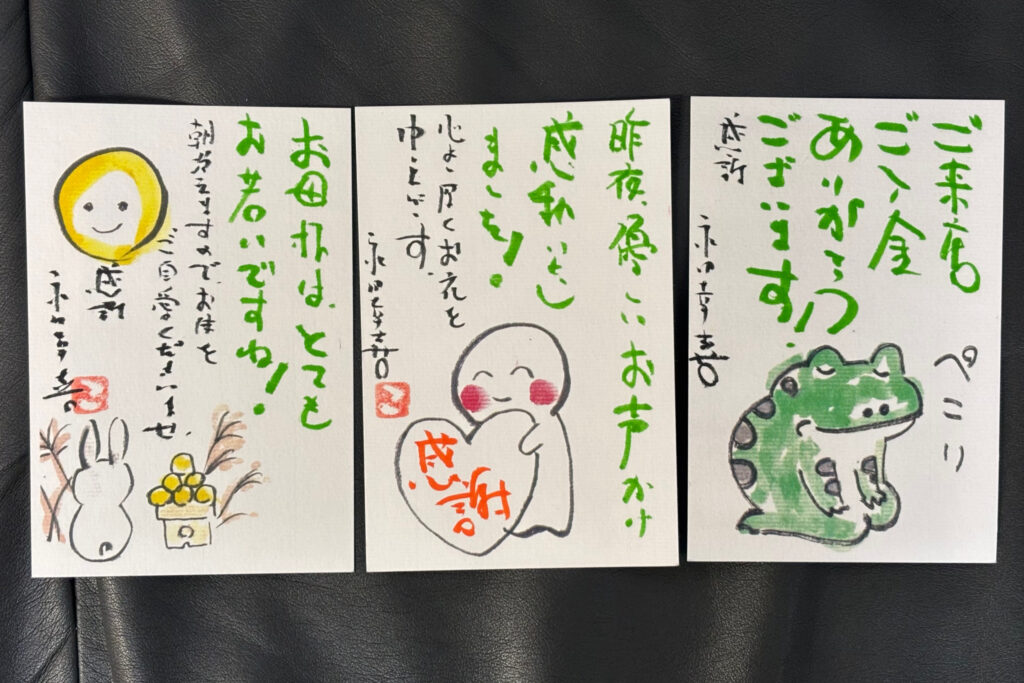 お母様は、とても
お若いですね!
朝方冷えますので、お体を
ご自愛くださいませ。
感謝
昨夜、優しいお声かけ
感動いたし
ました!
心より厚くお礼を
申し上げます。
感謝
ご来店
ご入金
ありがとう
ございます!
感謝
ペコリ